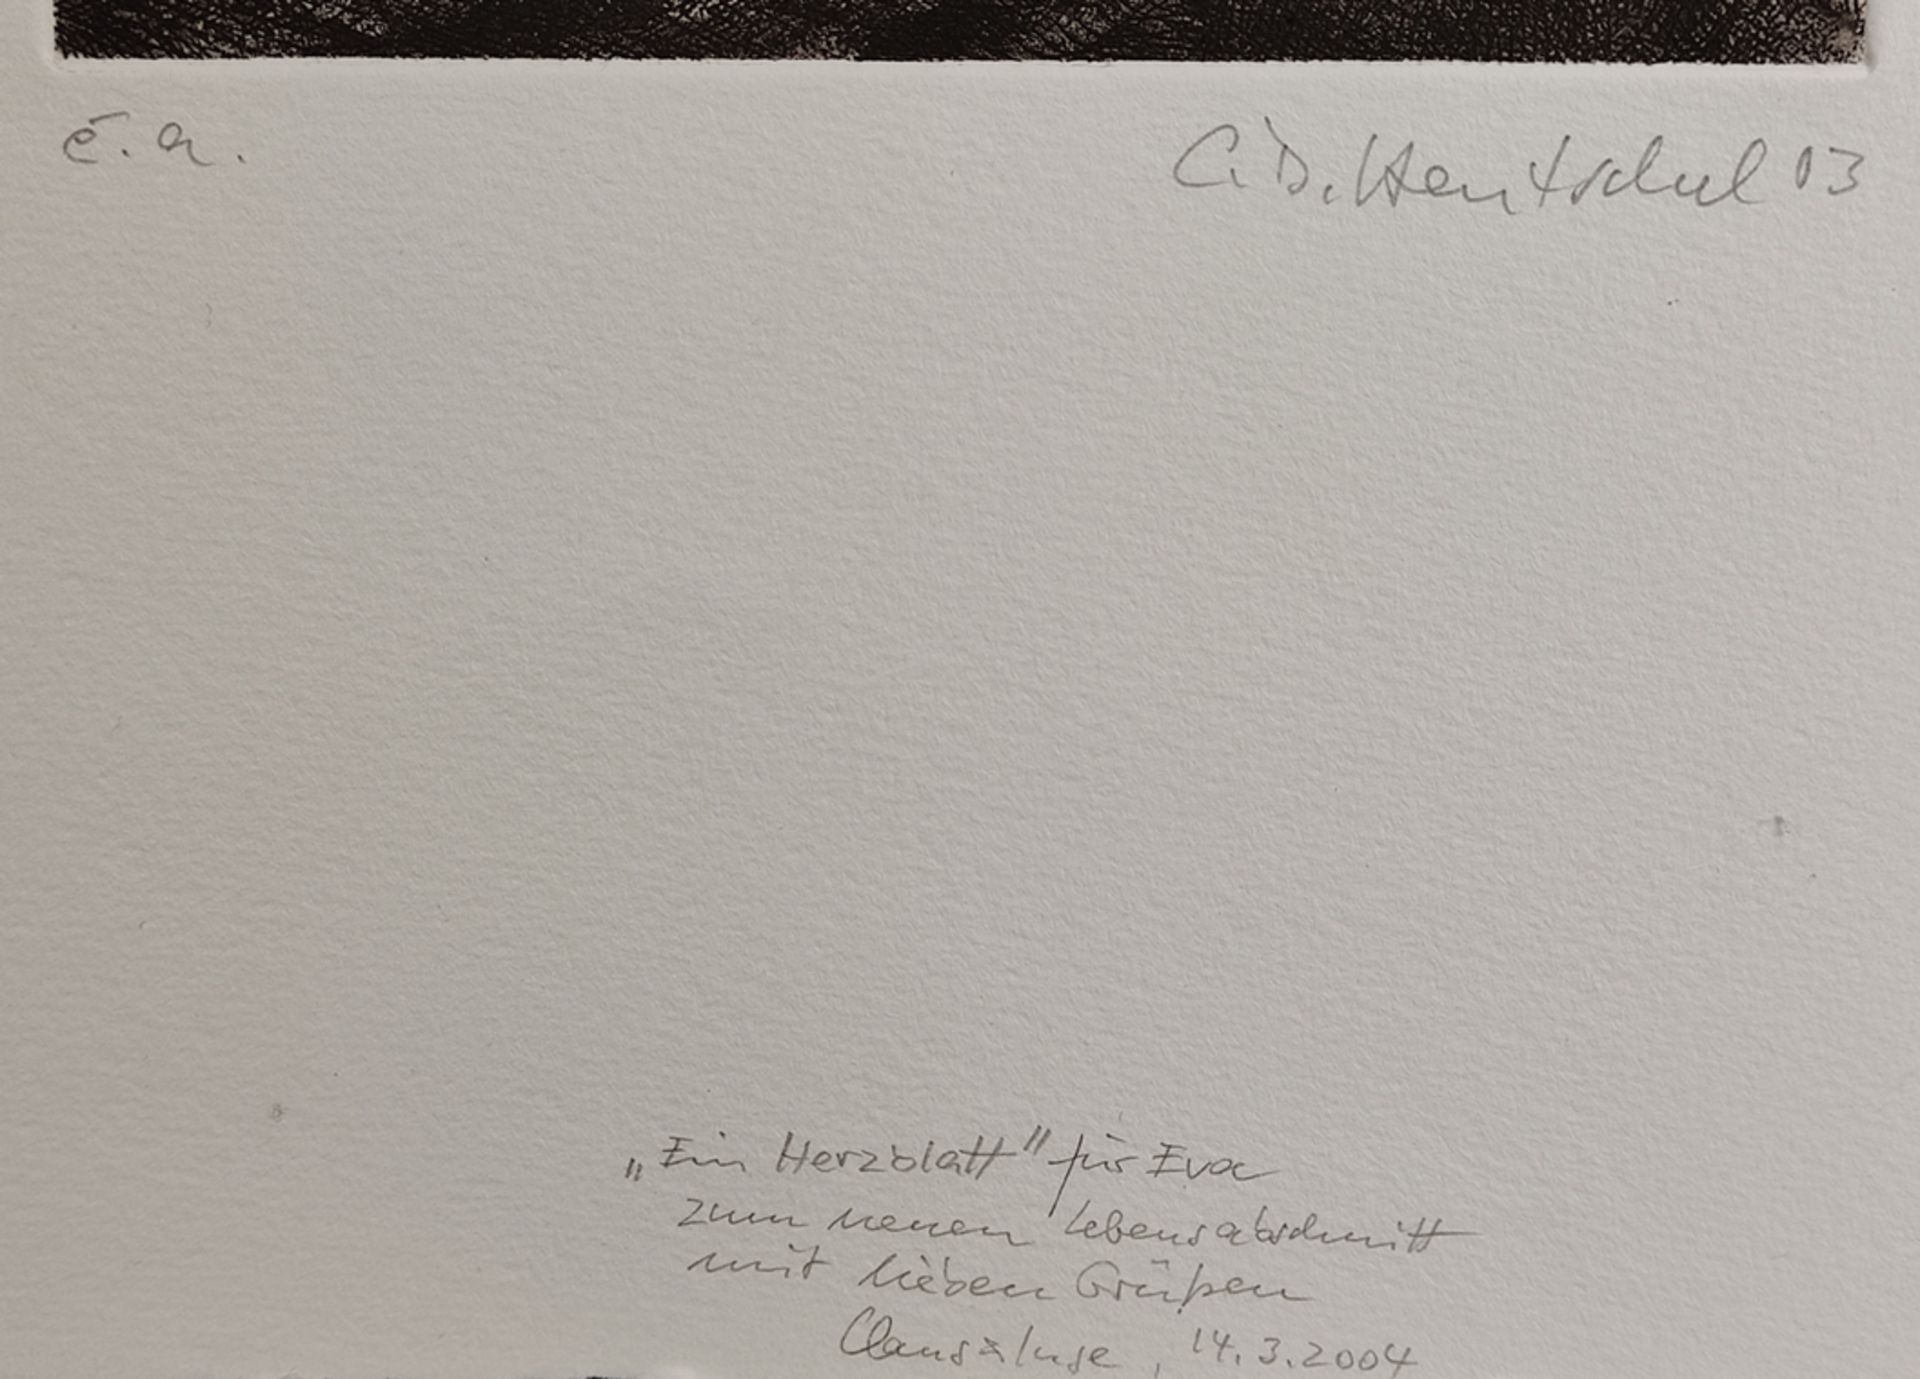 é. a.
C. D. Hentschel 03
„Ein Herzblatt" für Eva
zum neuen Lebensabschnitt
mit lieben Grüßen
Claus & Inge, 14.3.2004